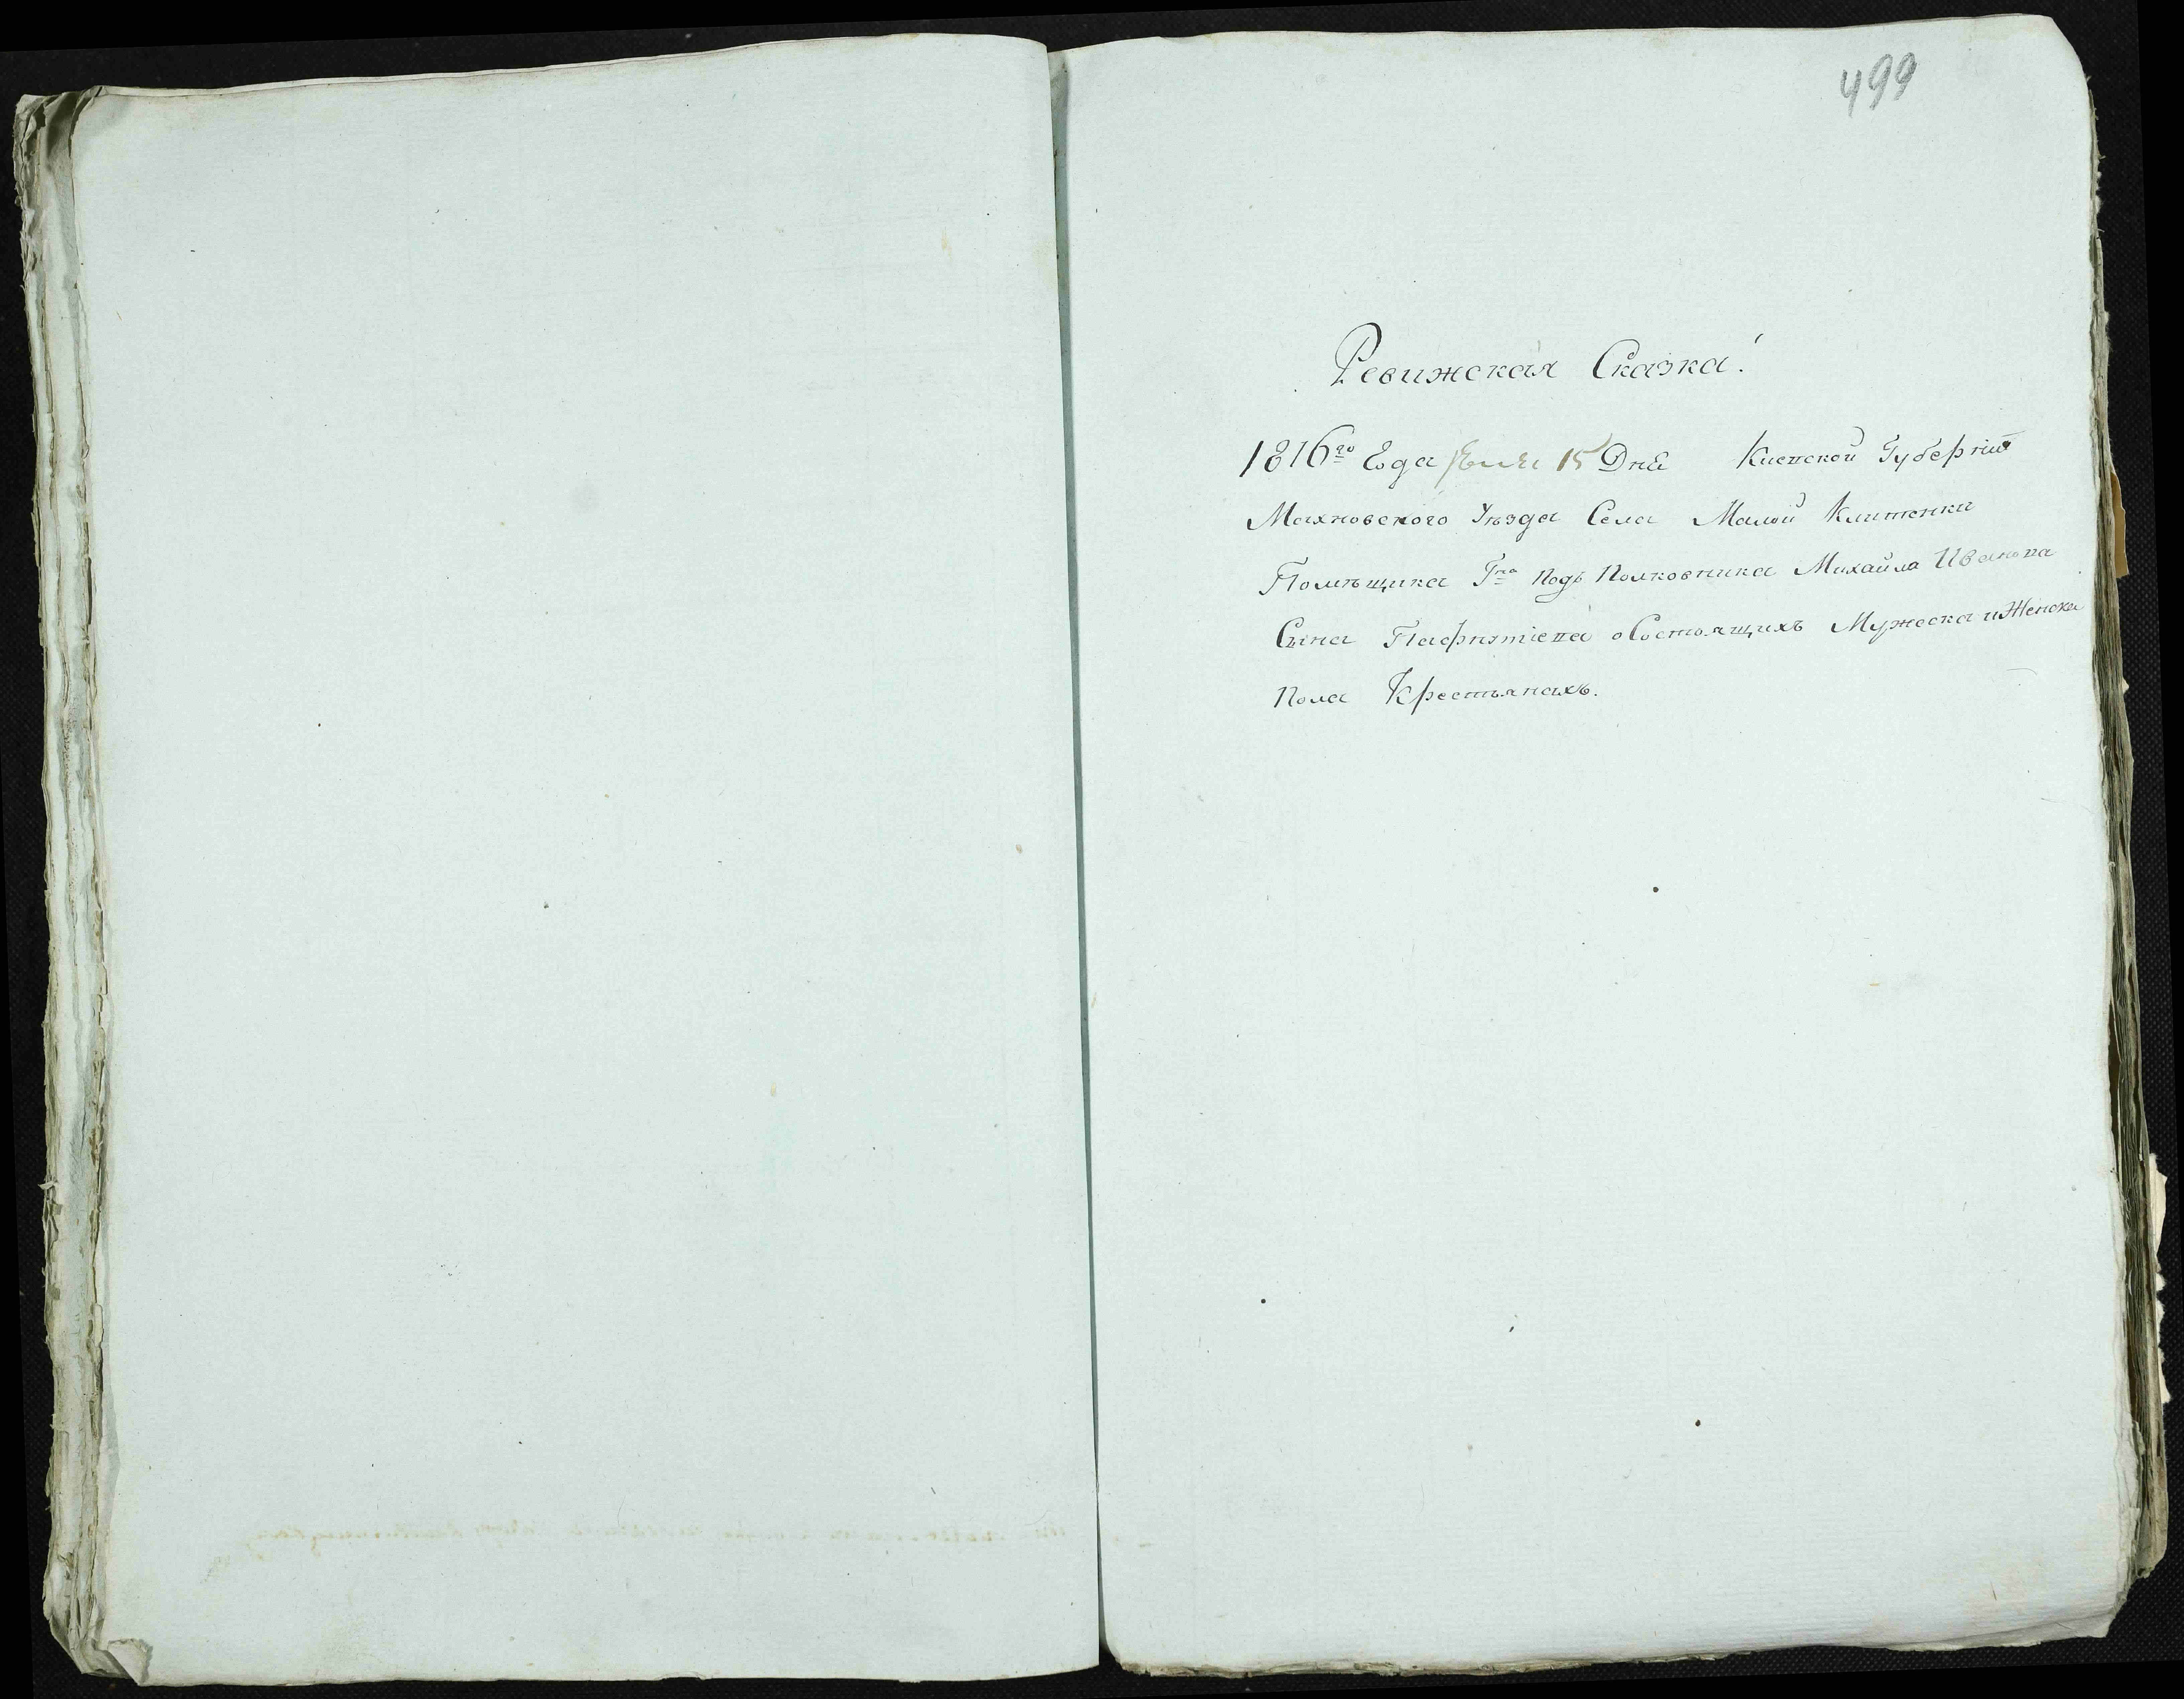 499
Ревижская Сказка!
1816го Года 15 Дня Киевской Губерніи
Махновского Уезда Села Малой Клитенки
Помѣщика Гна подъ Полковника Михайла Иванова
Сына Пафнотіева о Состоящихъ Мужеска и Женска
Пола Крестьянахъ.